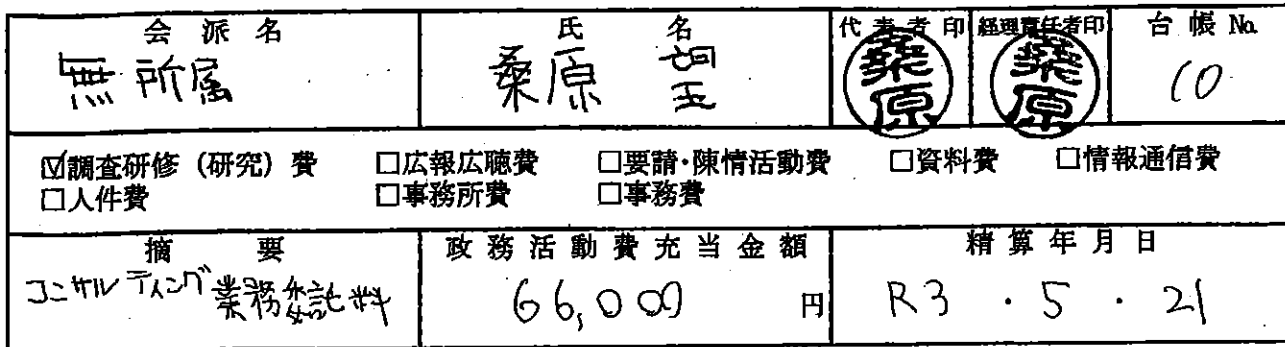 会派名 氏名 代表者印 経理責任者印 台帳No.
無所属 桑原 望 桑原 桑原 10
☑調査研修(研究)費 □広報広聴費 □要請・陳情活動費 □資料費 □情報通信費
□人件費 □事務所費 □事務費
摘要 政務活動費充当金額 精算年月日
コンサルティング業務委託料 66,000 円 R3・5・21